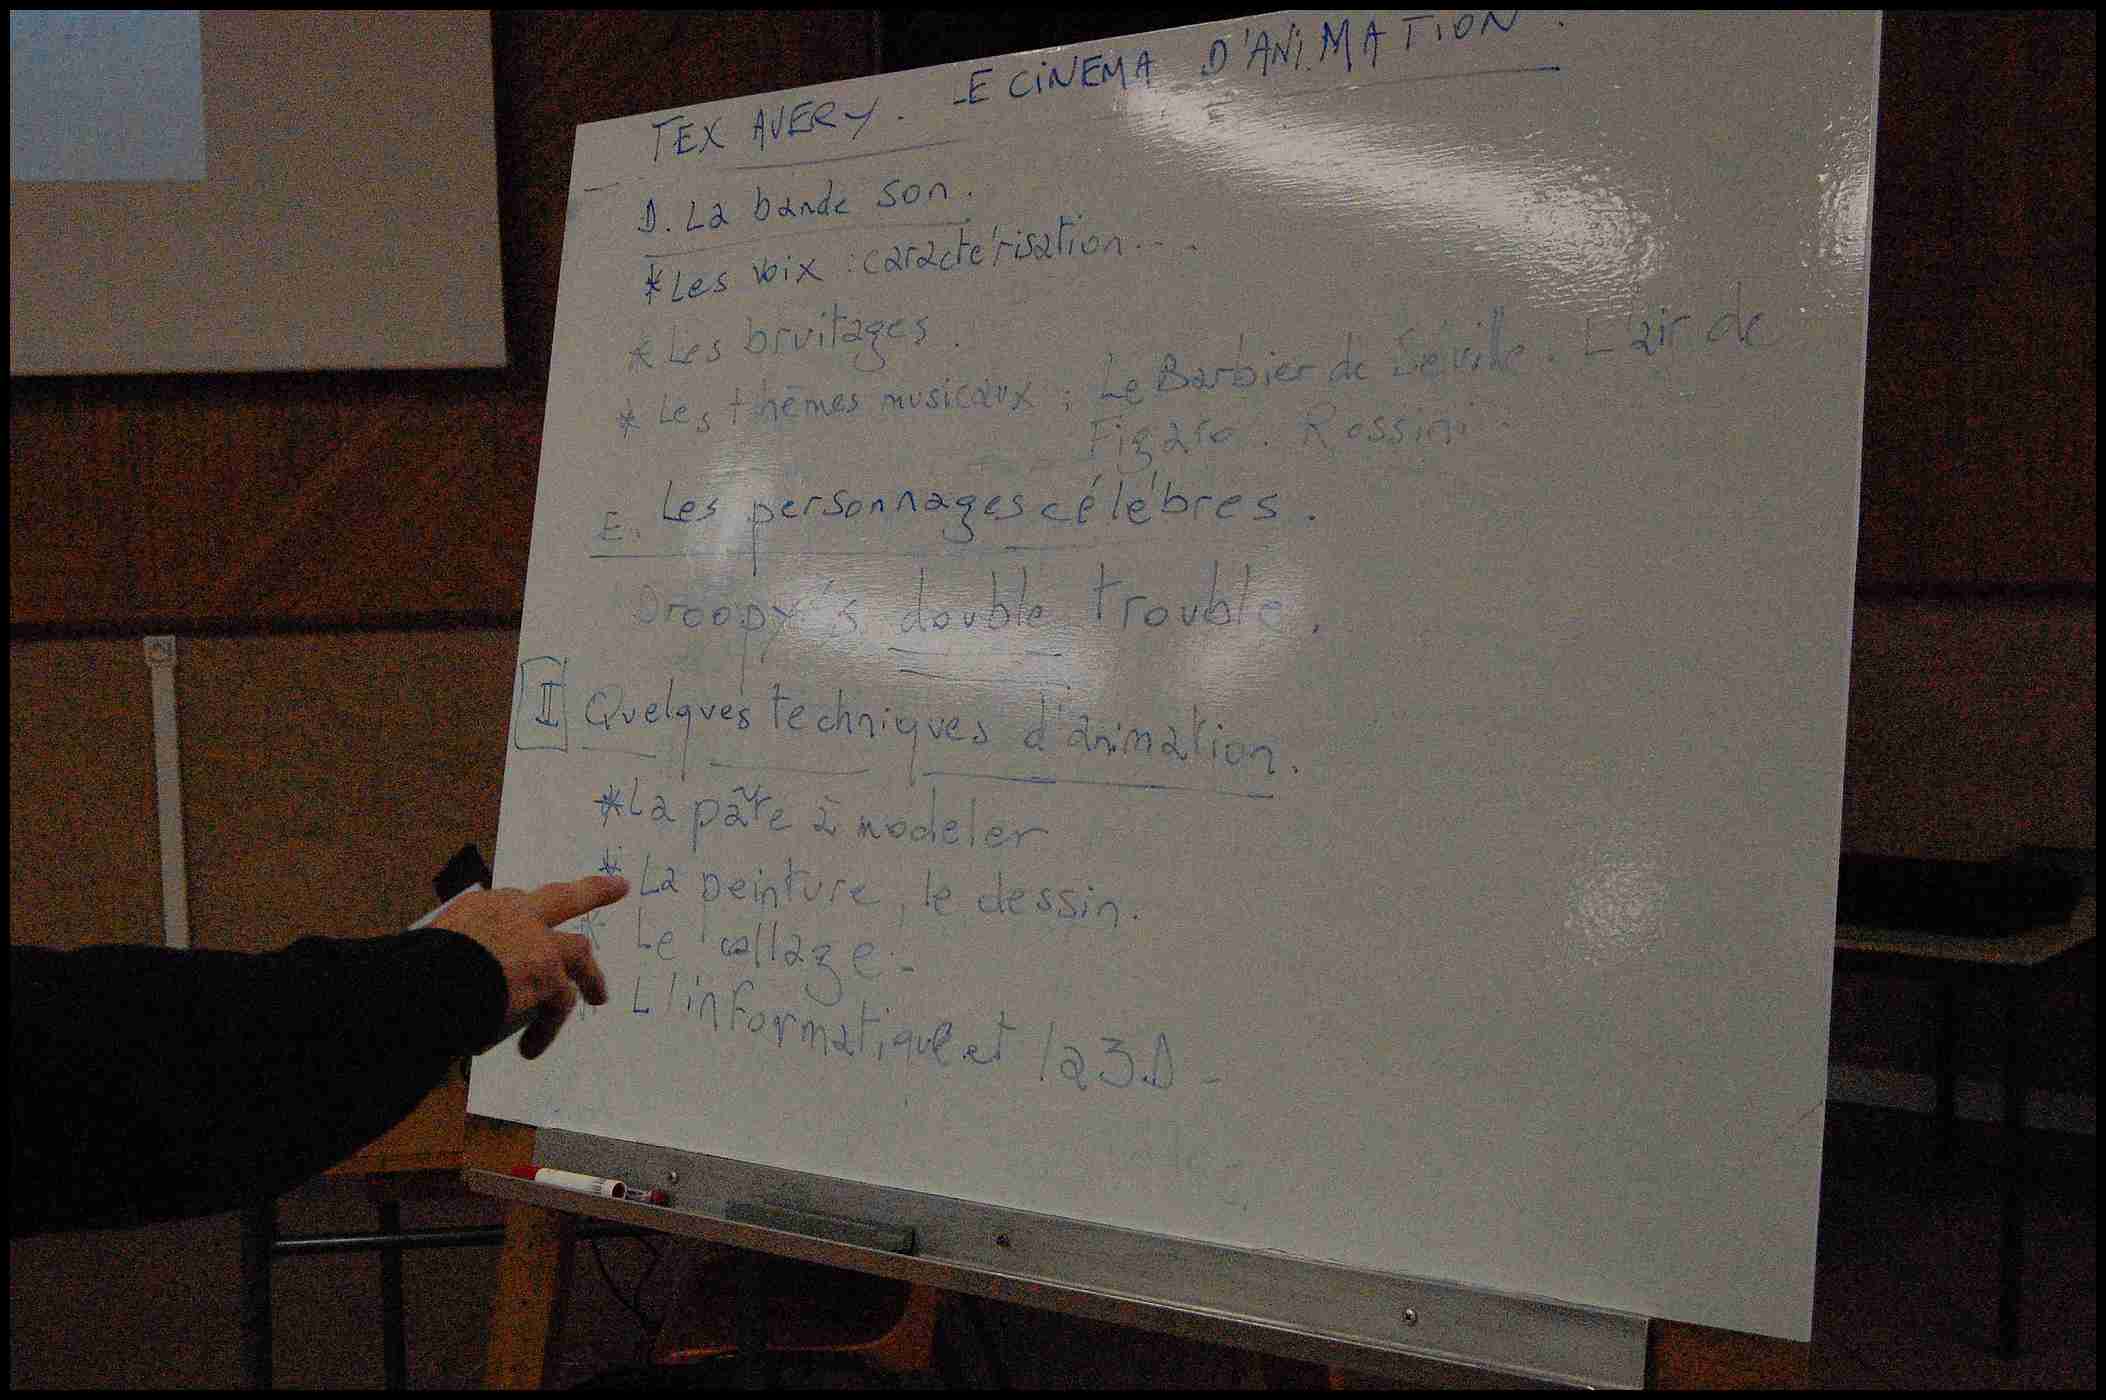 TEX AVERY. LE CINEMA D'ANIMATION.
D. La bande son.
*Les voix : caractérisation...
*Les bruitages.
* Les thèmes musicaux : Le Barbier de Séville. L'air de
Figaro. Rossini.
E. Les personnages célèbres.
Droopy's double trouble.
II Quelques techniques d'animation.
*La pâte à modeler
* La peinture, le dessin.
* Le collage.
* L'informatique et la 3D.